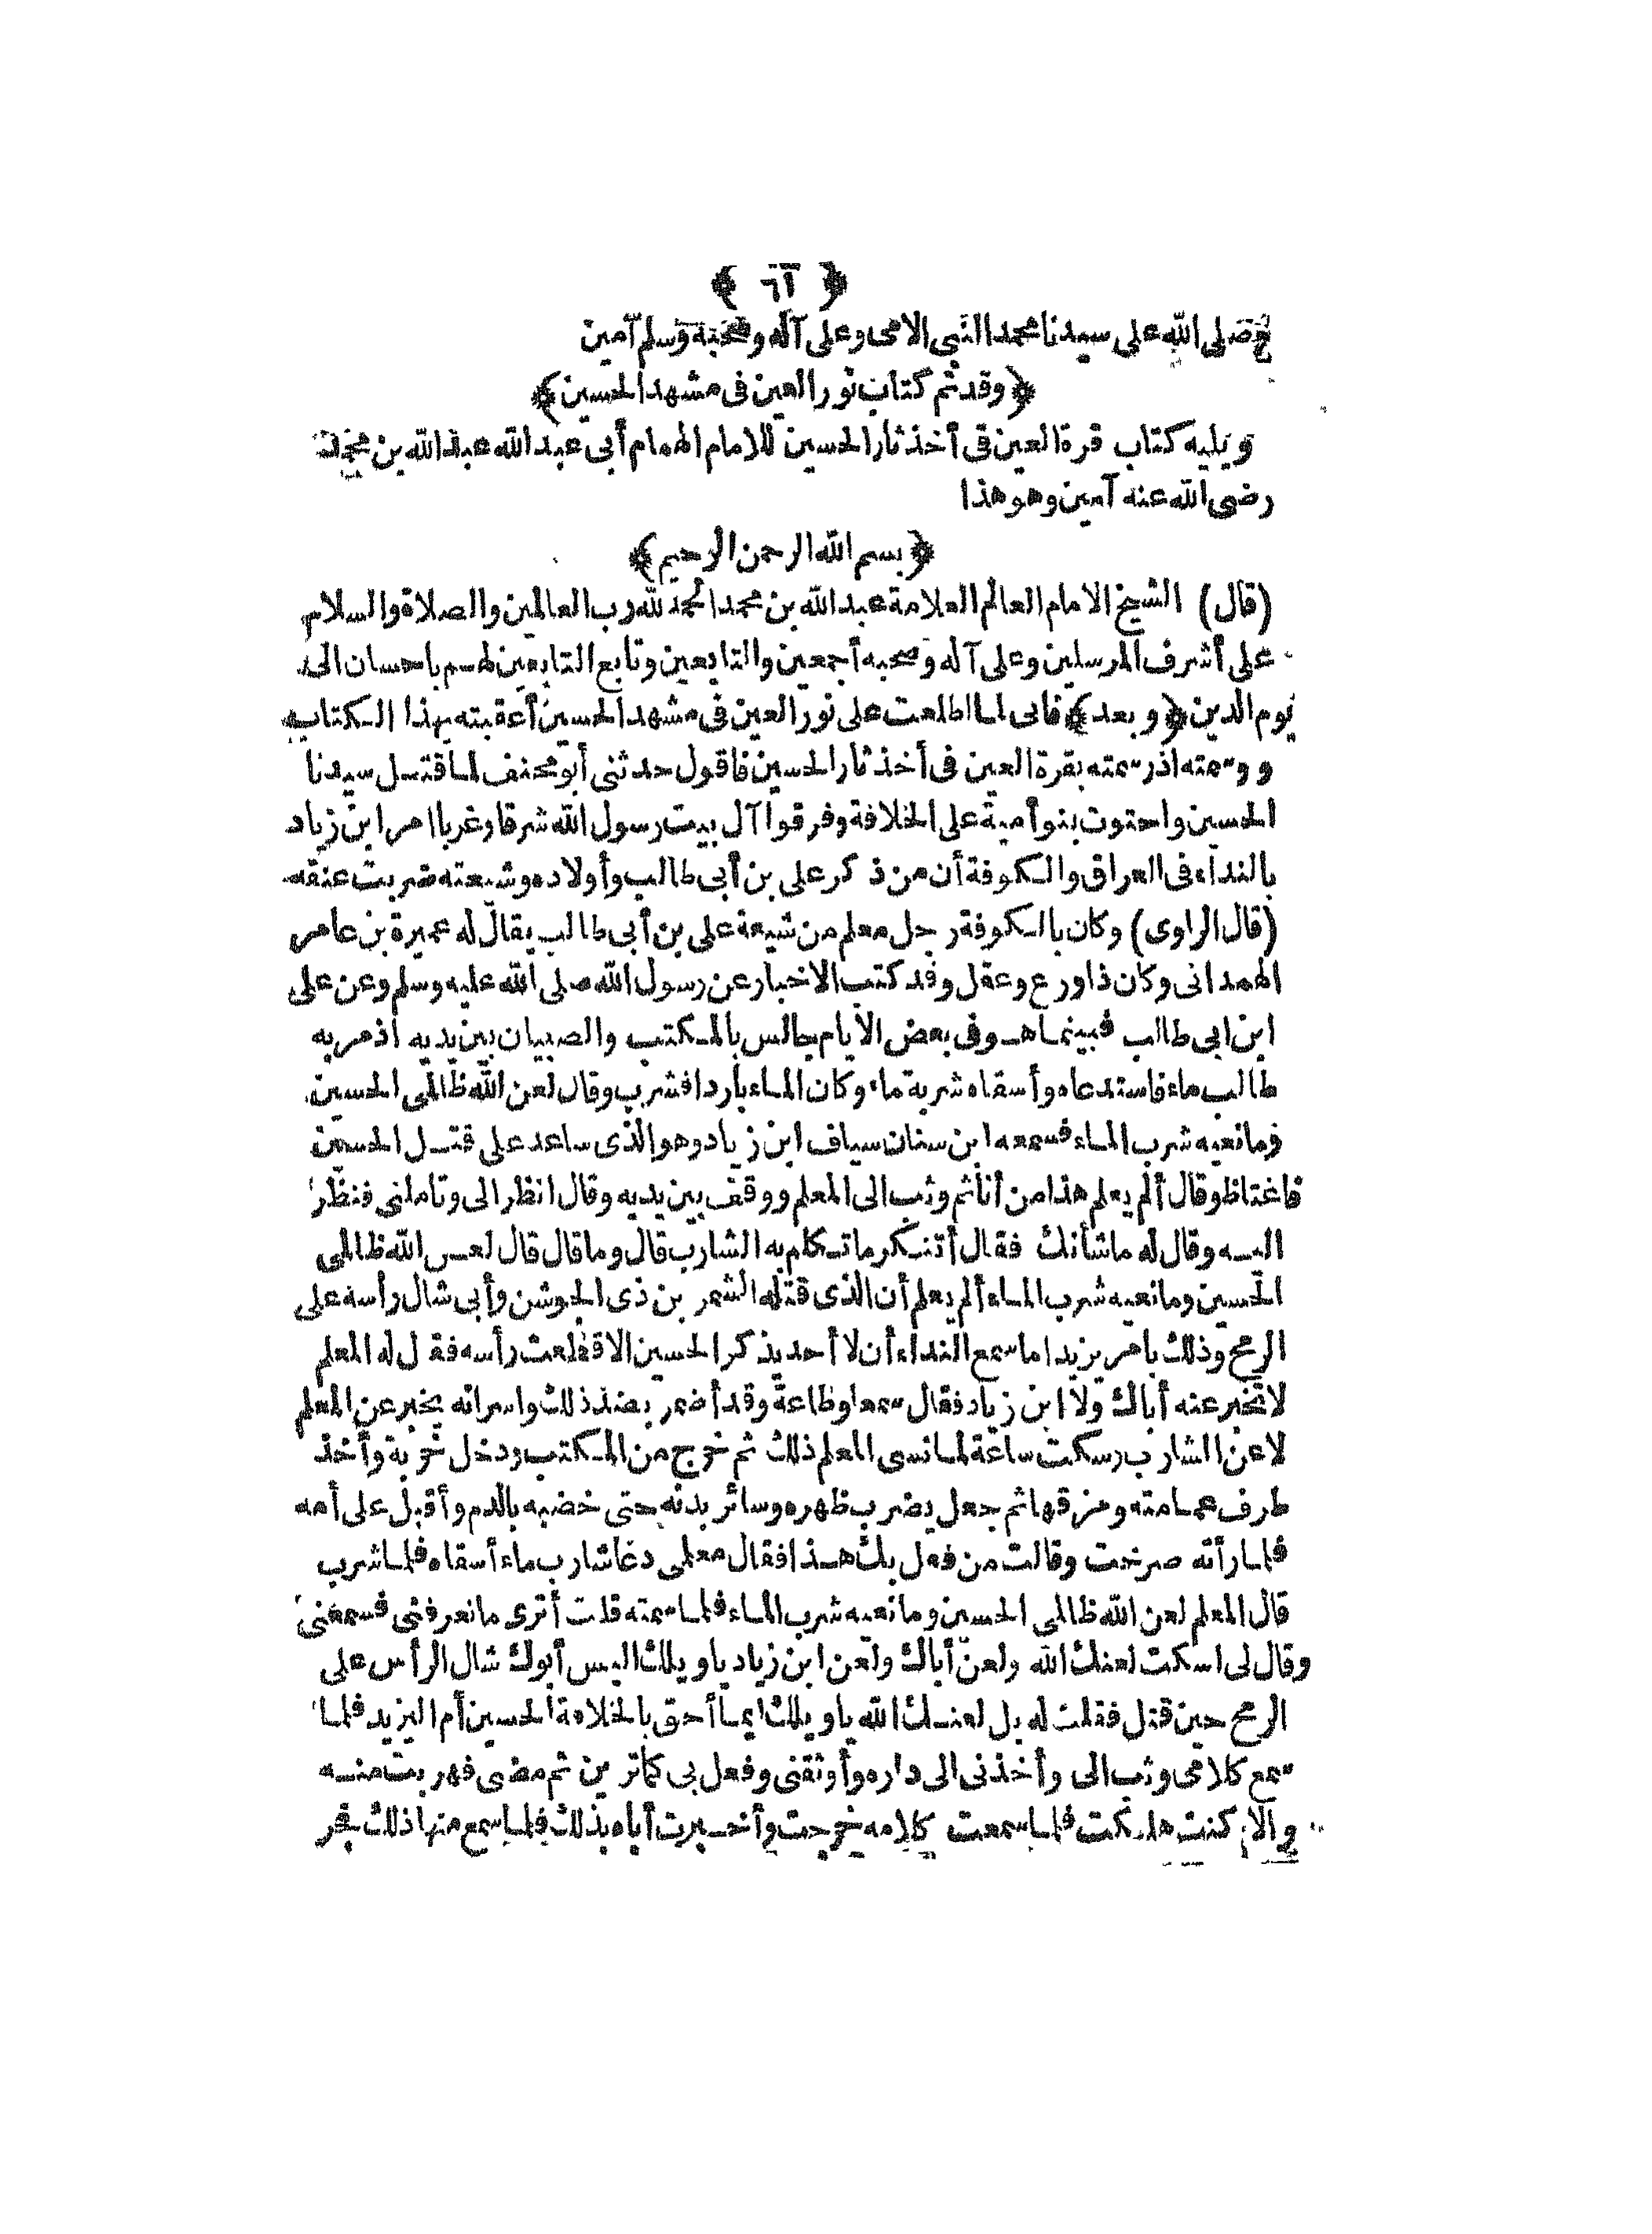 ﴿ ٦١ ﴾
وصلى الله على سيدنا محمد النبي الامي وعلى آله وصحبه وسلم آمين
﴿وقد تم كتاب نور العين فى مشهد الحسين﴾
ويليه كتاب قرة العين فى أخذ ثار الحسين للامام الهمام أبى عبد الله عبد الله بن محمد
رضى الله عنه آمين وهو هذا
﴿بسم الله الرحمن الرحيم﴾
(قال) الشيخ الامام العالم العلامة عبد الله بن محمد الحمد لله رب العالمين والصلاة والسلام
على أشرف المرسلين وعلى آله وصحبه أجمعين والتابعين وتابع التابعين لهم باحسان الى
يوم الدين ﴿وبعد﴾ فانى لما اطلعت على نور العين فى مشهد الحسين أعقبته بهذا الكتاب
ووسمته اذ رسمته بقرة العين فى أخذ ثار الحسين فاقول حدثنى أبو مخنف لما قتل سيدنا
الحسين واحتوت بنو أمية على الخلافة وفرقوا آل بيت رسول الله شرقا وغربا امر ابن زياد
بالنداء فى العراق والكوفة أن من ذكر على بن أبى طالب وأولاده وشيعته ضربت عنقه
(قال الراوى) وكان بالكوفة رجل معلم من شيعة على بن أبى طالب يقال له عميرة بن عامر
الهمدانى وكان ذا ورع وعقل وقد كتب الاخبار عن رسول الله صلى الله عليه وسلم وعن على
ابن ابى طالب فبينما هو فى بعض الايام جالس بالمكتب والصبيان بين يديه اذ مر به
طالب ماء فاستدعاه وأسقاه شربة ماء وكان الماء باردا فشرب وقال لعن الله ظالمى الحسين
ومانعيه شرب الماء فسمعه ابن سنان سياف ابن زياد وهو الذى ساعد على قتل الحسين
فاغتاظ وقال ألم يعلم هذا من أنا ثم وثب الى المعلم ووقف بين يديه وقال انظر الى وتاملنى فنظر
اليه وقال له ما شأنك فقال أتنكر ما تكلم به الشارب قال وما قال قال لعن الله ظالمى
الحسين ومانعيه شرب الماء ألم يعلم أن الذى قتله الشمر بن ذى الجوشن وأبى شال رأسه على
الرمح وذلك بامر يزيد اما سمع النداء أن لا أحد يذكر الحسين الا قلعت رأسه فقال له المعلم
لا تخبر عنه أباك ولا ابن زياد فقال سمعا وطاعة وقد أضمر بضد ذلك واسرانه يخبر عن المعلم
لا عن الشارب وسكت ساعة لما نسى المعلم ذلك ثم خرج من المكتب ودخل خربة وأخذ
طرف عمامته ومزقها ثم جعل يضرب ظهره وسائر بدنه حتى خضبه بالدم وأقبل على أمه
فلما رأته صرخت وقالت من فعل بك هذا فقال معلمى دعا شارب ماء أسقاه فلما شرب
قال المعلم لعن الله ظالمى الحسين ومانعيه شرب الماء فلما سمعته قلت أترى ما تعرفنى فسمعنى
وقال لى اسكت لعنك الله ولعن أباك ولعن ابن زياد ياويلك اليس أبوك شال الرأس على
الرمح حين قتل فقلت له بل لعنك الله ياويلك ايما أحق بالخلافة الحسين أم اليزيد فلما
سمع كلامى وثب الى وأخذنى الى داره وأوثقنى وفعل بى كما ترين ثم مضى فهربت منه
والا كنت هلكت فلما سمعت كلامه خرجت وأخبرت أباه بذلك فلما سمع منها ذلك